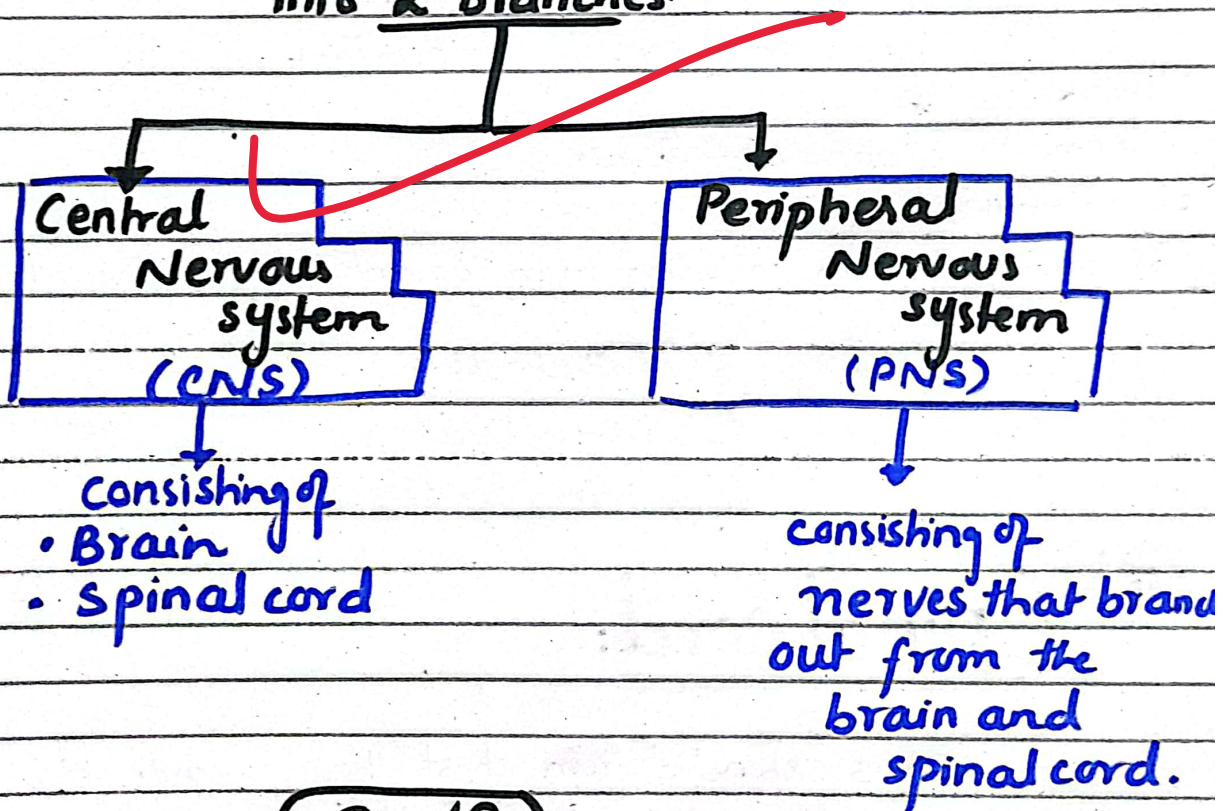 into 2 branches
Central
Nervous
system
(CNS)
consisting of
• Brain
• spinal cord
Peripheral
Nervous
system
(PNS)
consisting of
nerves that
out from the
brain and
spinal cord.